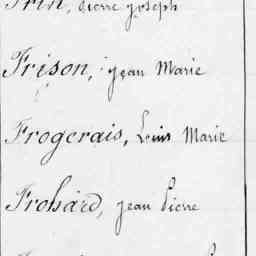 Frin, pierre joseph
Frison, jean Marie
Frogerais, Louis Marie
Frohard, jean Pierre